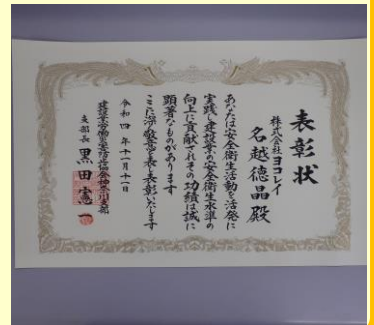 表彰状
株式会社ヨコレイ
名越徳晶殿
あなたは安全衛生活動を活発に
実践し建設業の安全衛生水準の
向上に貢献されその功績は誠に
顕著なものがあります
ここに深く敬意を表し表彰いたします
令和四年十一月十一日
建設業労働災害防止協会神奈川支部
支部長 黒田憲一